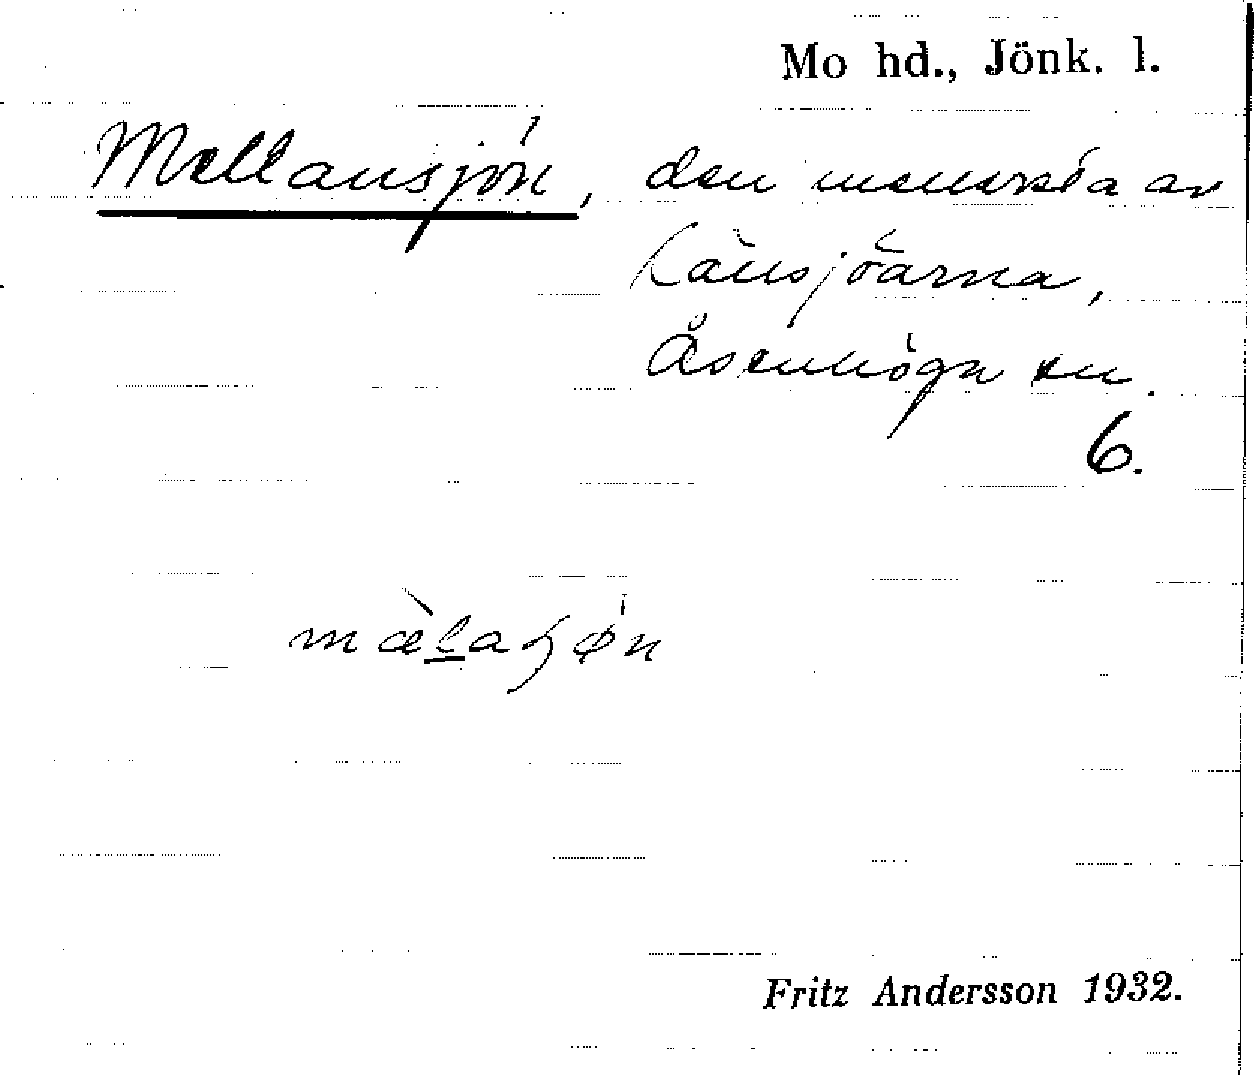 Mo hd., Jönk. l.
Mellansjön, den mellersta av
Länsjöarna,
Åsenhöga sn.
6.
mæ̀l̲aɧø̍n
Fritz Andersson 1932.